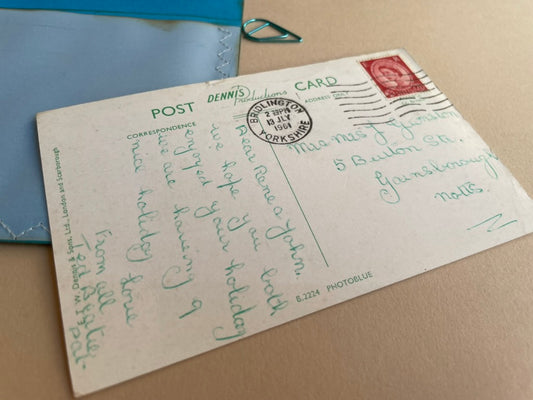 POST CARD
DENNIS
Productions
CORRESPONDENCE
ADDRESS ONLY
BRIDLINGTON
2 PM
13 JLY
1961
YORKSHIRE
Dear Rene & John.
We hope you both
enjoyed your holiday
we are having a
nice holiday Love
From all
Ted
Pat.
Mr and Mrs J
5 St.
Gainsborough
Notts.
W. Dennis & Sons, Ltd., London and Scarborough
B.2224 PHOTOBLUE